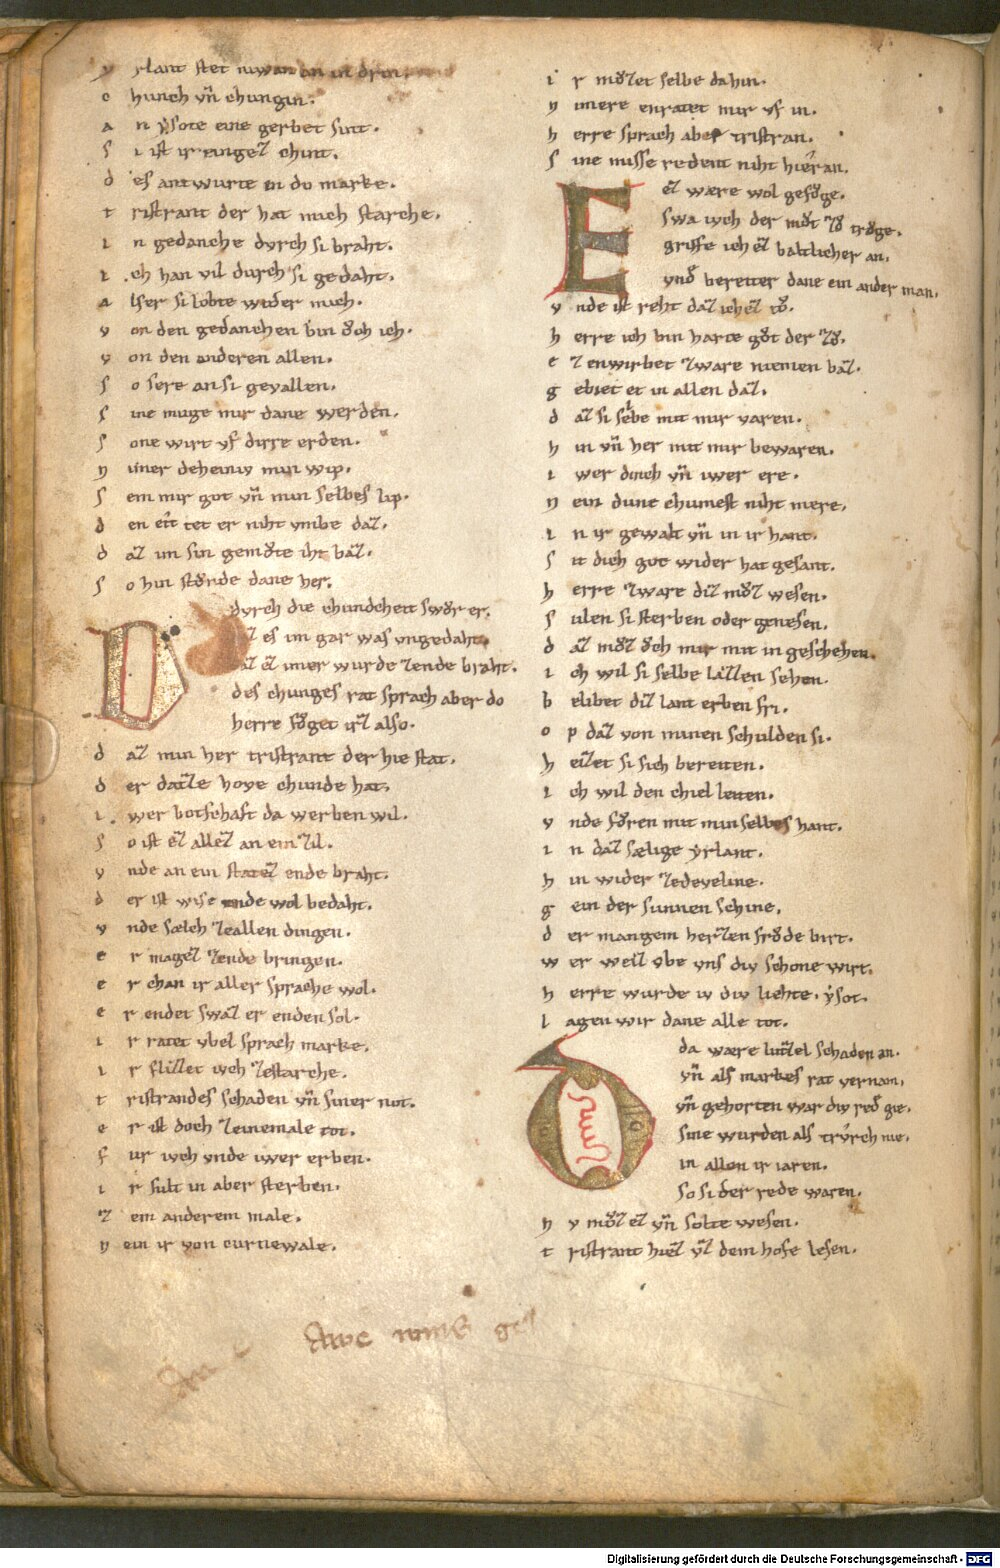 y rlant stet niwan an in drin.
c hunch vn̄ chungin.
a n ẏsote eine gerbet sint.
s i ist ir eingeʒ chint.
d es antwurte in do marke.
t ristrant der hat mich starche.
i n gedanche dvrch si braht.
i ch han vil durch si gedaht.
a lser si lobte wider mich.
v on den gedanchen bin ǒch ich.
v on den anderen allen.
s o sere an si gevallen.
s ine muge mir dane werden.
s one wirt vf dirre erden.
n imer deheiniv min wip.
s em mir got vn̄ min selbes lip.
d en eit tet er niht vmbe daʒ.
d aʒ im sin gemǒte iht baʒ.
s o hin stǒnde dane her.
D dvrch die chundcheit swǒr er.
aʒ es im gar was vngedaht.
aʒ eʒ imer wurde ʒende braht.
des chunges rat sprach aber do
herre fǒget irʒ also.
d aʒ min her tristrant der hie stat.
d er daʒʒe hove chunde hat.
i wer botschaft da werben wil.
s o ist eʒ alleʒ an ein ʒil.
v nde an ein stateʒ ende braht.
d er ist wise ende wol bedaht.
v nde sælch ʒeallen dingen.
e r mageʒ ʒende bringen.
e r chan ir aller sprache wol.
e r endet swaʒ er enden sol.
i r ratet vbel sprach marke.
i r fliʒʒet iwch ʒestarche.
t ristrandes schaden vn̄ siner not.
e r ist doch ʒeinemale tot.
f ur iwch vnde iwer erben.
i r sult in aber sterben.
ʒ em anderem male.
n ein ir von curnewale.
i r mǒʒet selbe dahin.
n imere enratet mir vf in.
h erre sprach aber tristran.
s ine misse redent niht hier an.
E eʒ wære wol gefǒge.
swa iwch der mǒt ʒǒ trǒge.
griffe ich eʒ baltlicher an.
vnd bereiter dane ein ander man.
v nde ist reht daʒ ich eʒ tǒ.
h erre ich bin harte gǒt der ʒǒ.
e ʒ enwirbet ʒware niemen baʒ.
g ebiet et in allen daʒ.
d aʒ si selbe mit mir varen.
h in vn̄ her mit mir bewaren.
i wer dinch vn̄ iwer ere.
n ein dune chumest niht mere.
i n ir gewalt vn̄ in ir hant.
s it dich got wider hat gesant.
h erre ʒware diʒ mǒʒ wesen.
s ulen si sterben oder genesen.
d aʒ mǒʒ ǒch mir mit in geschehen.
i ch wil si selbe laʒʒen sehen.
b elibet diʒ lant erben fri.
o p daʒ von minen schulden si.
h eiʒet si sich bereiten.
i ch wil den chiel leiten.
v nde fǒren mit min selbes hant.
i n daʒ sælige ẏrlant.
h in wider ʒedeveline.
g ein der sunnen schine.
d er mangem herʒen frǒde birt.
w er weiʒ obe vns div schone wirt.
h erre wurde iv div liehte. ẏsot.
l agen wir dane alle tot.
D da wære luʒʒel schaden an.
vn̄ als markes rat vernam.
vn̄ gehorten war div red gie.
sine wurden als trvrch nie.
in allen ir iaren.
so si der rede waren.
n v mǒʒ eʒ vn̄ solte wesen.
t ristrant hieʒ vʒ dem hofe lesen.
Digitalisierung gefördert durch die Deutsche Forschungsgemeinschaft - DFG